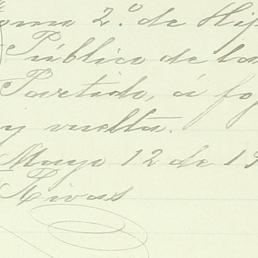 omo 2.º de Hip
Público de los
Partido, á fo
y vuelta.
Mayo 12 de 19
Rivas